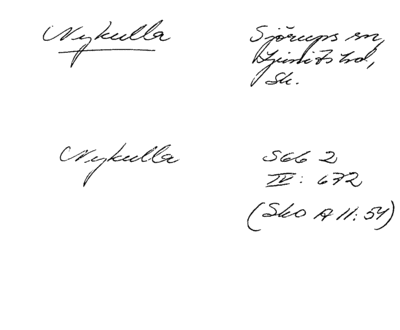 Nykulla
Sjörups sn,
Ljunits hd,
Sk.
Nykulla
SGG 2
IV: 672
(Sko A 11: 54)